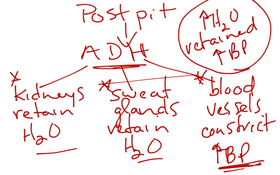 Post pit
ADH
↑H₂O
retained
↑BP
* kidneys
retain
H₂O
* sweat
glands
retain
H₂O
* blood
vessels
constrict
↑BP